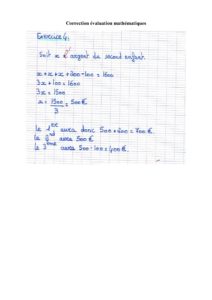 Correction évaluation mathématiques
Exercice 4:
Soit x l'argent du second enfant.
x + x + x + 200 - 100 = 1600
3x + 100 = 1600
3x = 1500
x = 1500/3 = 500€
Le 1er aura donc 500 + 200 = 700€.
Le 2nd aura 500€.
Le 3ème aura 500 - 100 = 400€.